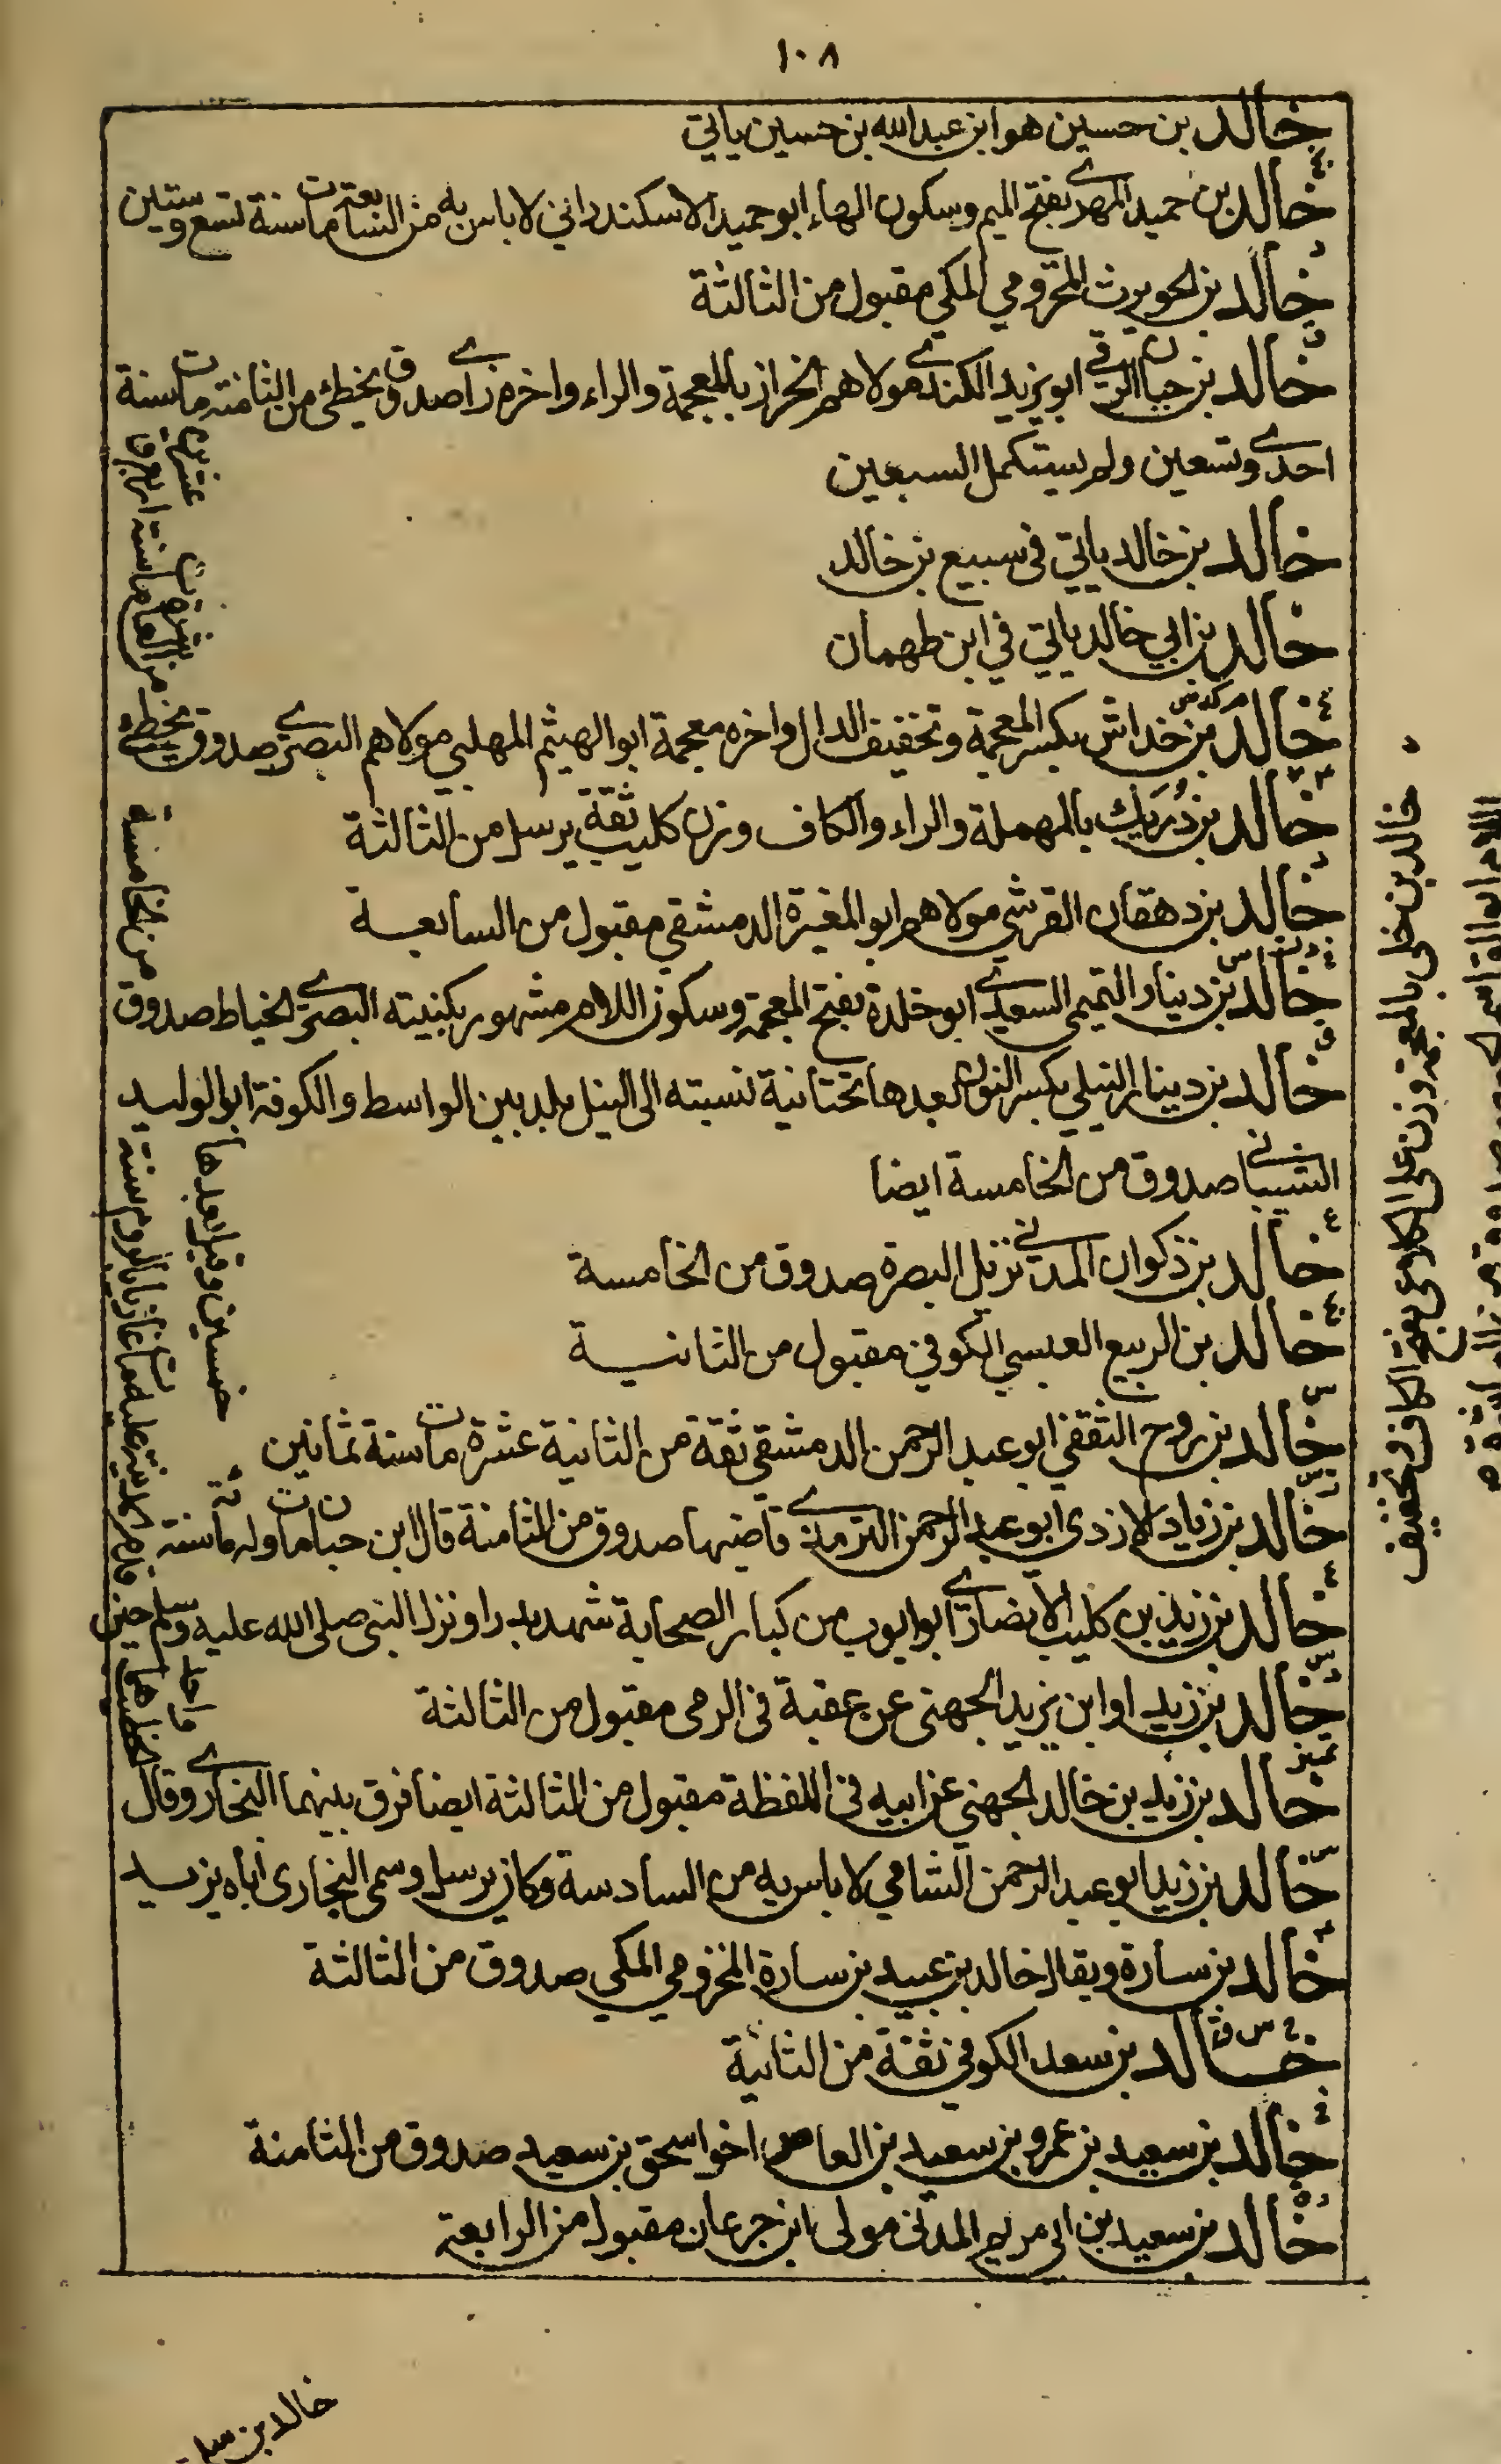 ١٠٨
خالد بن حسين هو ابن عبد الله بن حسين ياتي
خالد بن حميد المهري بفتح الميم وسكون الهاء ابو حميد الاسكندراني لا باس به من السابعة مات سنة تسع وستين
خالد بن الحويرث المخزومي المكي مقبول من الثالثة
خالد بن حيان الرقي ابو يزيد الكندي مولاهم الخراز بالمعجمة والراء واخره زاي صدوق يخطئ من الثامنة مات سنة
احدى وتسعين ولم يستكمل السبعين
خالد بن خالد ياتي في سبيع بن خالد
خالد بن ابي خالد ياتي في ابن طهمان
خالد بن خداش بكسر المعجمة وتخفيف الدال واخره معجمة ابو الهيثم المهلبي مولاهم البصري صدوق يخطئ
من العاشرة مات سنة اربع وعشرين
خالد بن دريك بالمهملة والراء والكاف وزن كليب ثقة يرسل من الثالثة
خالد بن دهقان القرشي مولاهم ابو المغيرة الدمشقي مقبول من السابعة
خالد بن دينار التميمي السعدي ابو خلدة بفتح المعجمة وسكون اللام مشهور بكنيته البصري الخياط صدوق
من الخامسة
خالد بن دينار النيلي بكسر النون بعدها تحتانية نسبته الى النيل بلد بين الواسط والكوفة ابو الوليد
الشيباني صدوق من الخامسة ايضا
خالد بن ذكوان المدني نزيل البصرة صدوق من الخامسة
خالد بن الربيع العبسي الكوفي مقبول من الثانية
خالد بن روح الثقفي ابو عبد الرحمن الدمشقي ثقة من الثانية عشرة مات سنة ثمانين
خالد بن زياد الازدي ابو عبد الرحمن الترمذي قاضيها صدوق من الثامنة قال ابن حبان مات وله مائة سنة
خالد بن زيد بن كليب الانصاري ابو ايوب من كبار الصحابة شهد بدرا ونزل النبي صلى الله عليه وسلم حين
قدم المدينة عليه مات غازيا بالروم سنة
خمسين وقيل بعدها
خالد بن زيد او ابن يزيد الجهني عن عقبة في الرمي مقبول من الثالثة
خالد بن زيد بن خالد الجهني عن ابيه في اللقطة مقبول من الثالثة ايضا فرق بينهما البخاري وقال
الخطيب هما واحد
خالد بن زيد ابو عبد الرحمن الشامي لا باس به من السادسة وكان يرسل وسمى البخاري اباه يزيد
خالد بن سارة ويقال خالد بن عبيد بن سارة المخزومي المكي صدوق من الثالثة
خالد بن سعد الكوفي ثقة من الثانية
خالد بن سعيد بن عمرو بن سعيد بن العاص اخو اسحق بن سعيد صدوق من الثامنة
خالد بن سعيد بن ابي مريم المدني مولى ابن جدعان مقبول من الرابعة
خالد بن خلي بالمعجمة وزن علي الكلاعي بفتح الكاف وتخفيف
خالد بن سلمة